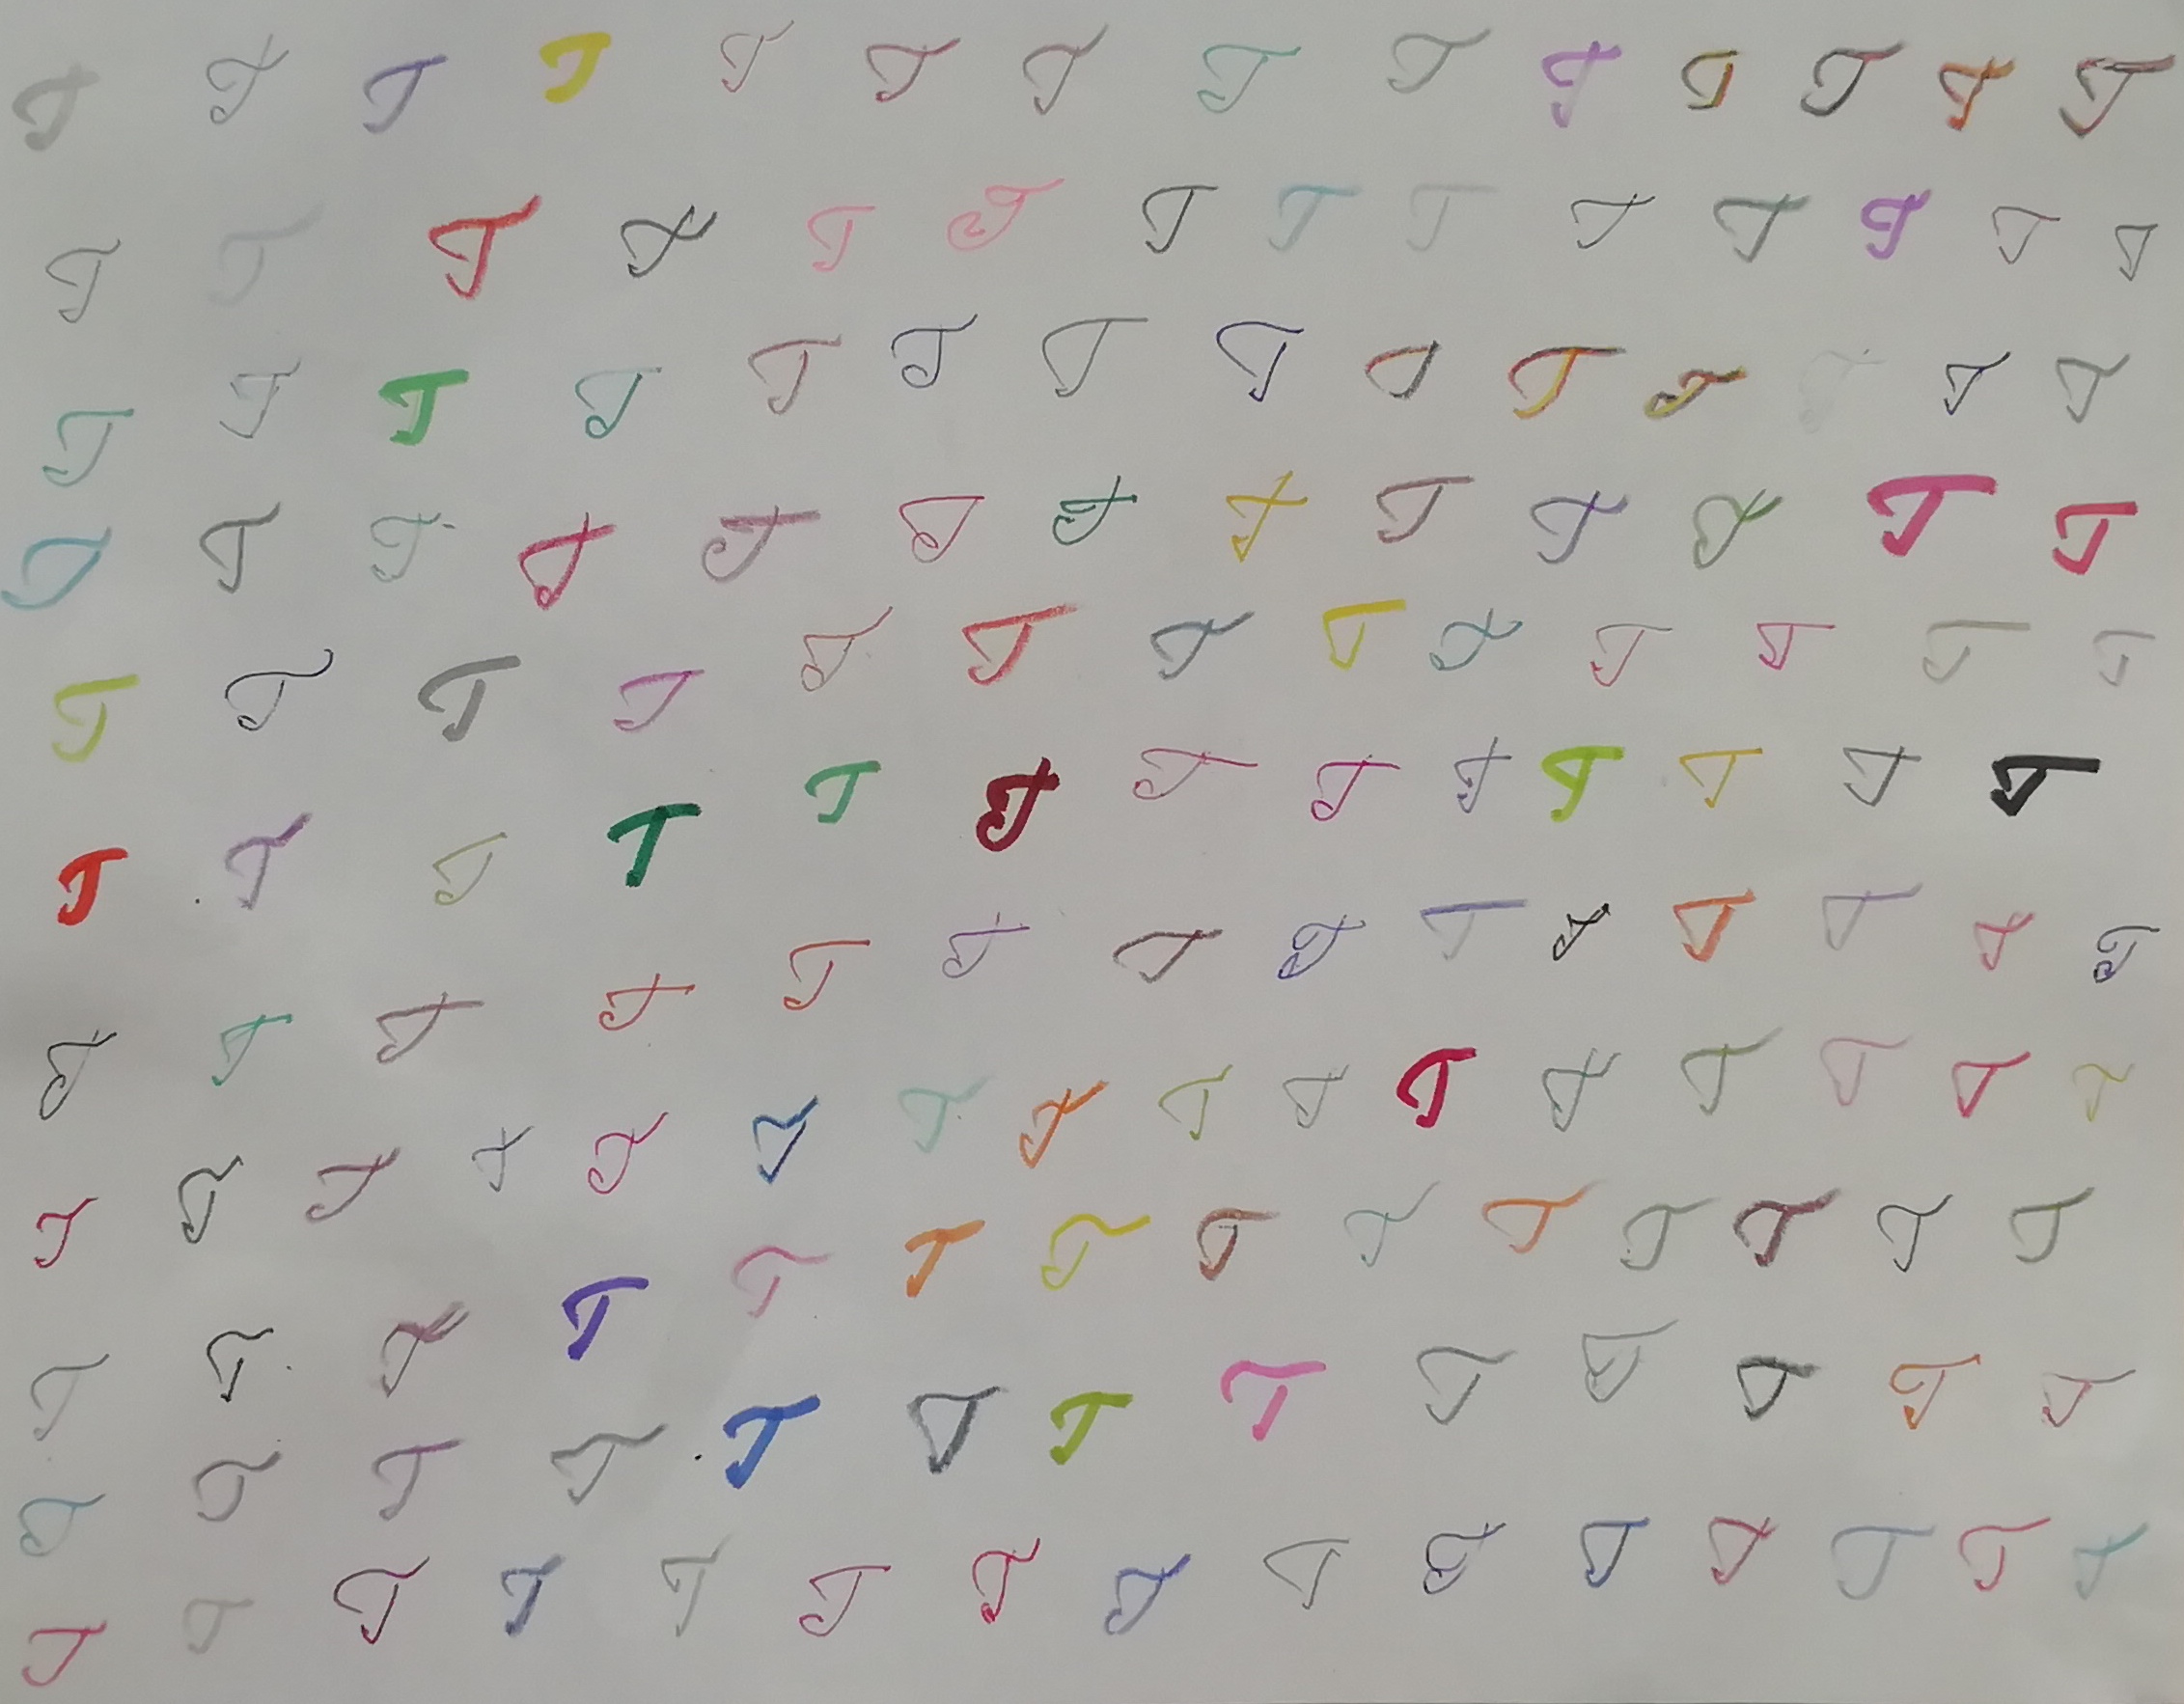 T T T T T T T T T T T T T T
T T T T T T T T T T T T T T
T T T T T T T T T T T T T T
T T T T T T T T T T T T T
T T T T T T T T T T T T T
T T T T T T T T T T T T T
T T T T T T T T T T T T T T
T T T T T T T T T T T T T T T T
T T T T T T T T T T T T T T
T T T T T T T T T T T T T
T T T T T T T T T T T T T T T